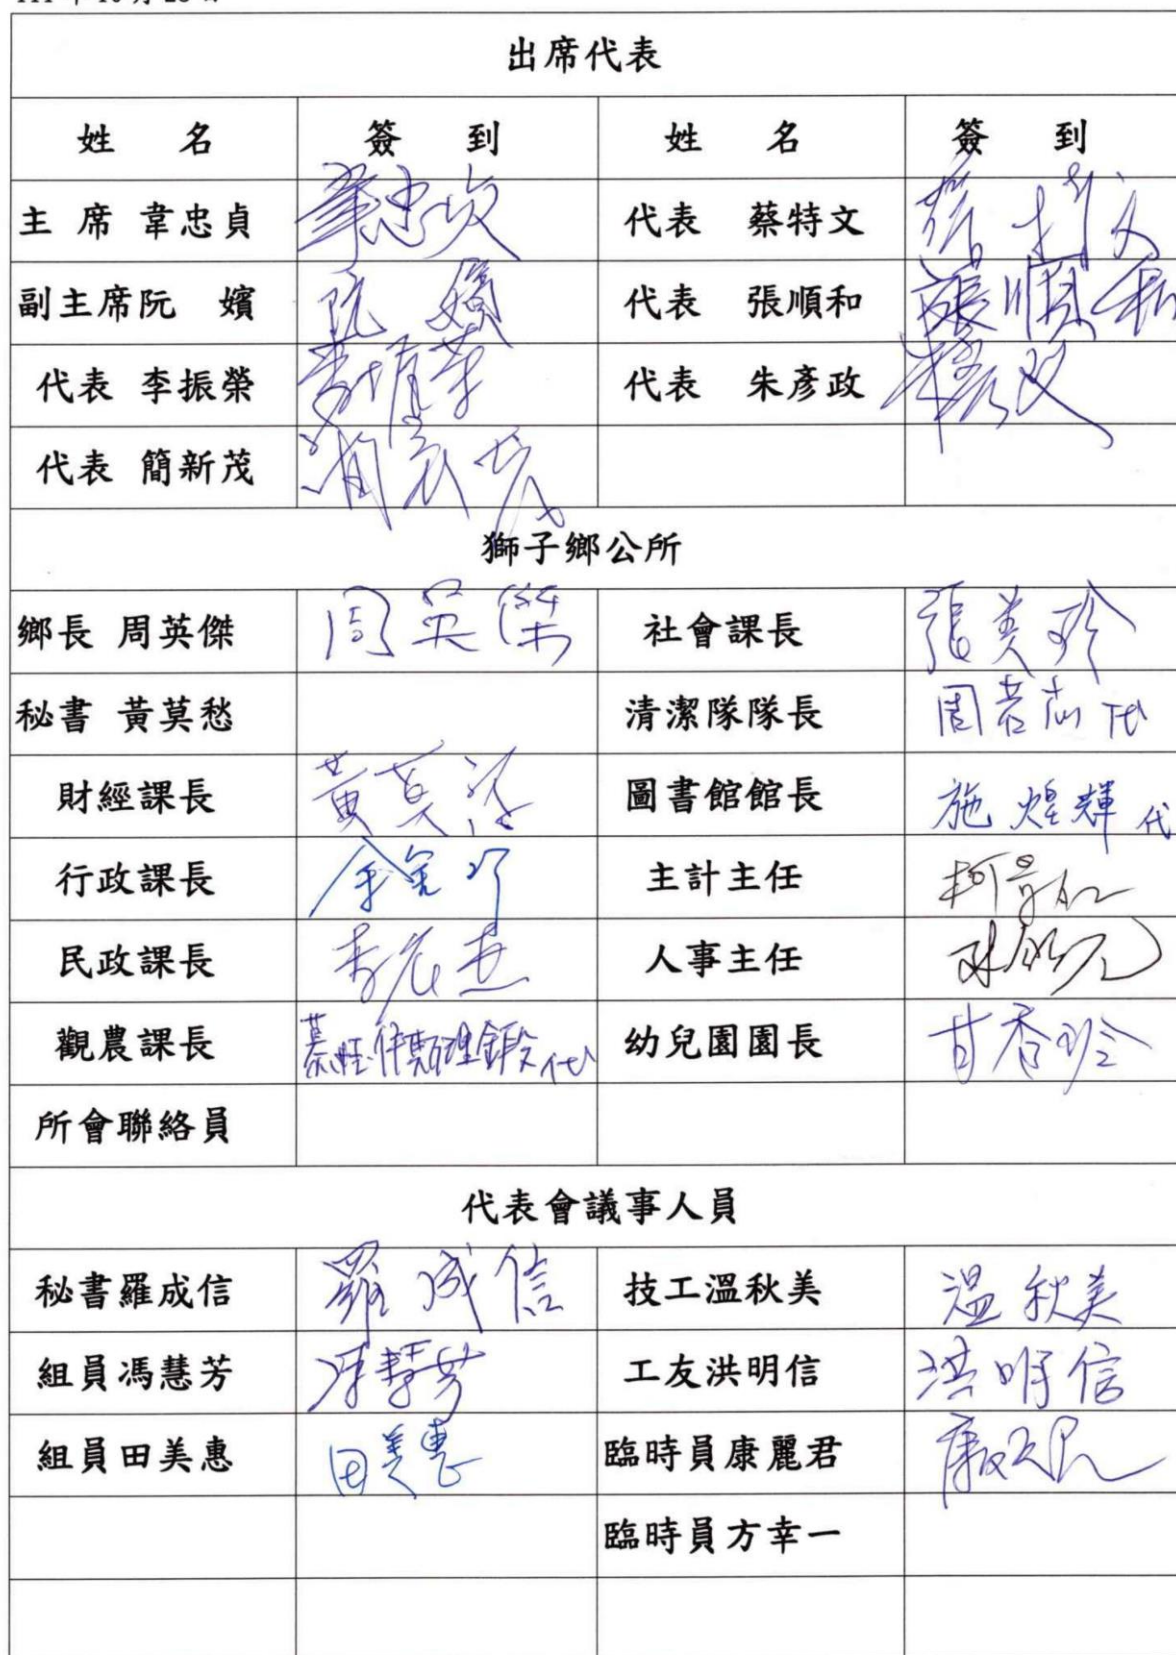 出席代表
姓 名 簽 到 姓 名 簽 到
主 席 韋忠貞 韋忠貞 代表 蔡特文 蔡特文
副主席阮 嬪 阮 嬪 代表 張順和 張順和
代表 李振榮 李振榮 代表 朱彥政
代表 簡新茂
獅子鄉公所
鄉長 周英傑 周英傑 社會課長 張美玲
秘書 黃莫愁 清潔隊隊長 代
財經課長 圖書館館長 施煌輝 代
行政課長 主計主任
民政課長 人事主任
觀農課長 代 幼兒園園長 甘香玲
所會聯絡員
代表會議事人員
秘書羅成信 羅成信 技工溫秋美 溫秋美
組員馮慧芳 馮慧芳 工友洪明信 洪明信
組員田美惠 田美惠 臨時員康麗君
臨時員方幸一